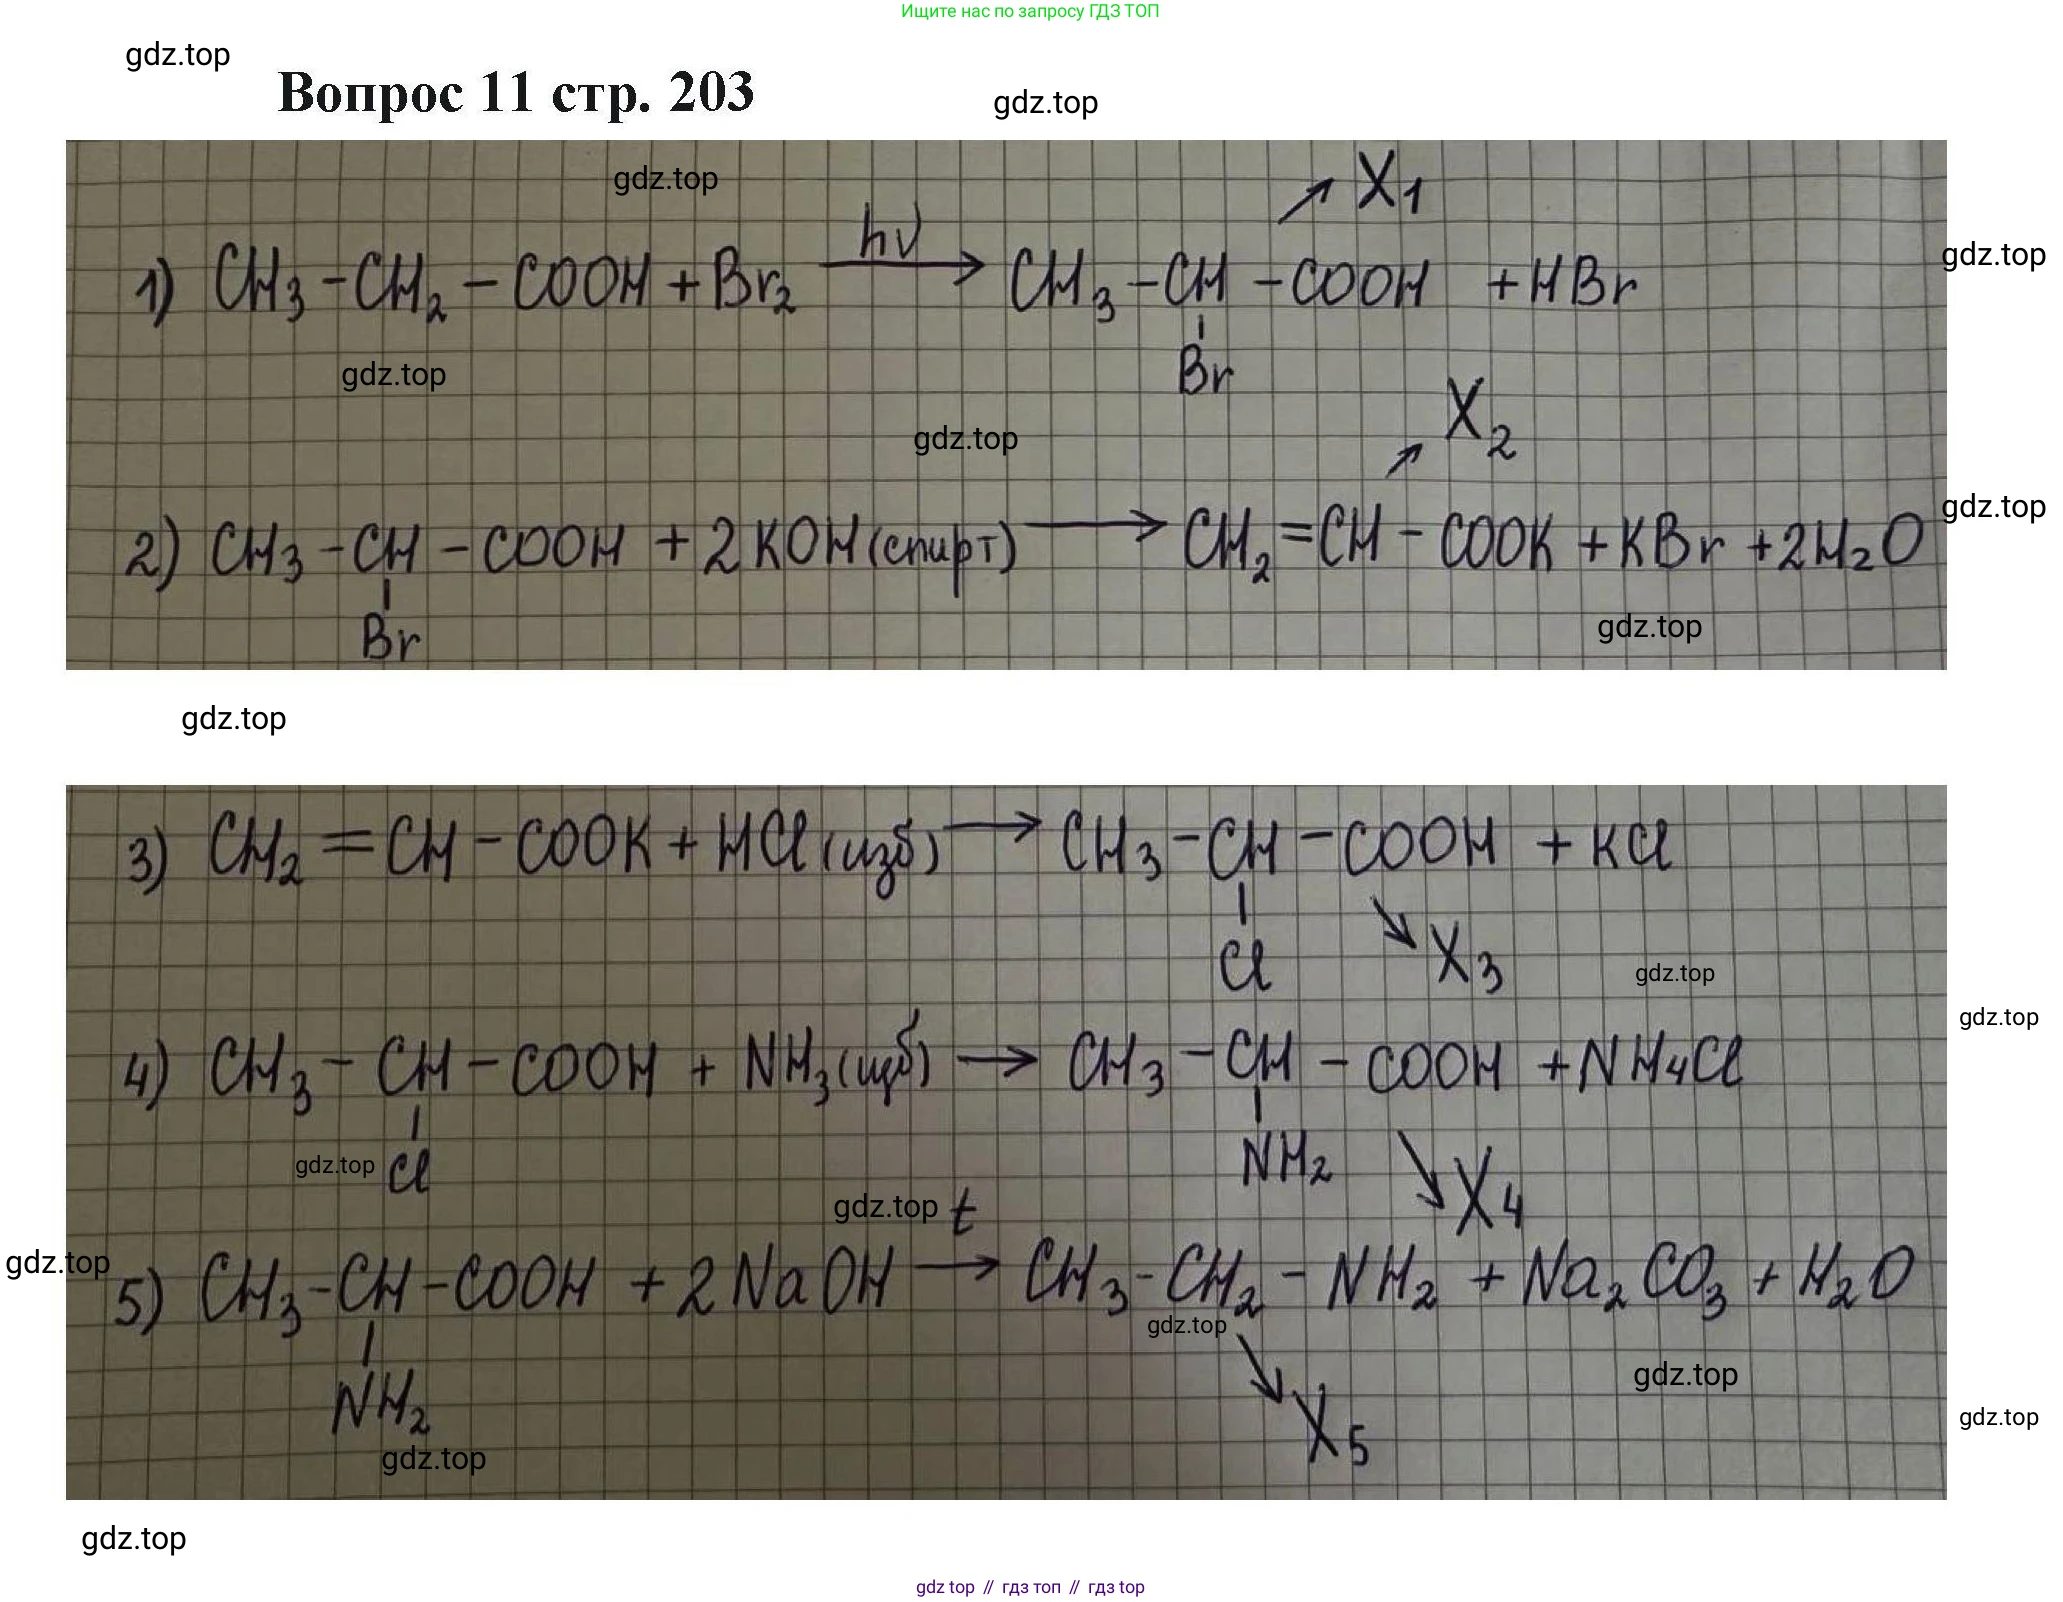 Ищите нас по запросу ГДЗ ТОП
gdz.top
Вопрос 11 стр. 203
gdz.top
gdz.top
X1
1) CH3-CH2-COOH+Br2 hν→ CH3-CH-COOH +HBr
gdz.top
Br
gdz.top
X2
gdz.top
2) CH3-CH-COOH+2KOH(спирт) → CH2=CH-COOK+KBr+2H2O
gdz.top
Br
gdz.top
gdz.top
3) CH2=CH-COOK+HCl(изб) → CH3-CH-COOH+KCl
Cl
X3
gdz.top
gdz.top
4) CH3-CH-COOH+NH3(изб) → CH3-CH-COOH+NH4Cl
gdz.top
Cl
NH2
X4
gdz.top
gdz.top
5) CH3-CH-COOH+2NaOH t→ CH3-CH2-NH2+Na2CO3+H2O
gdz.top
NH2
gdz.top
gdz.top
X5
gdz.top
gdz.top
gdz top // гдз топ // gdz top